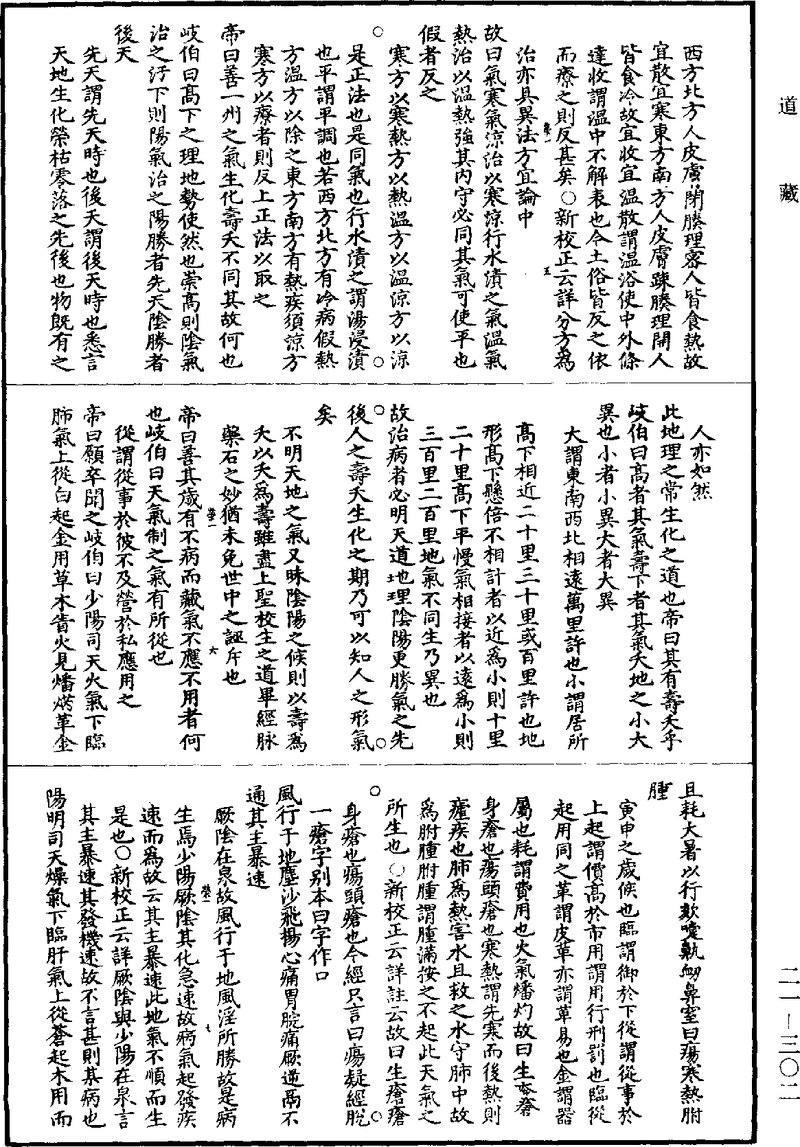 道藏
西方北方人皮膚閉腠理密人皆食熱故
宜散宜寒東方南方人皮膚踈腠理開人
皆食冷故宜收宜溫散謂溫浴使中外條
達收謂溫中不解表也今土俗皆反之依
而療之則反甚矣○新校正云詳分方為
治亦具異法方宜論中
故曰氣寒氣涼治以寒涼行水漬之氣溫氣
熱治以溫熱強其內守必同其氣可使平也
假者反之
寒方以寒熱方以熱溫方以溫涼方以涼
是正法也是同氣也行水漬之謂湯浸漬
也平謂平調也若西方北方有冷病假熱
方溫方以除之東方南方有熱疾須涼方
寒方以療者則反上正法以取之
帝曰善一州之氣生化壽夭不同其故何也
岐伯曰高下之理地勢使然也崇高則陰氣
治之汙下則陽氣治之陽勝者先天陰勝者
後天
先天謂先天時也後天謂後天時也悉言
天地生化榮枯零落之先後也物既有之
人亦如然
此地理之常生化之道也帝曰其有壽夭乎
岐伯曰高者其氣壽下者其氣夭地之小大
異也小者小異大者大異
大謂東南西北相遠萬里許也小謂居所
高下相近二十里三十里或百里許也地
形高下懸倍不相計者以近為小則十里
二十里高下平慢氣相接者以遠為小則
三百里二百里地氣不同生乃異也
故治病者必明天道地理陰陽更勝氣之先
後人之壽夭生化之期乃可以知人之形氣
矣
不明天地之氣又昧陰陽之候則以壽為
夭以夭為壽雖盡上聖校生之道畢經脉
藥石之妙猶未免世中之誣斥也
帝曰善其歲有不病而藏氣不應不用者何
也岐伯曰天氣制之氣有所從也
從謂從事於彼不及營於私應用之
帝曰願卒聞之岐伯曰少陽司天火氣下臨
肺氣上從白起金用草木眚火見燔焫革金
且耗大暑以行欬嚏鼽衂鼻窒曰瘍寒熱胕
腫
寅申之歲候也臨謂御於下從謂從事於
上起謂價高於市用謂用行刑罰也臨從
起用同之革謂皮革亦謂革易也金謂器
屬也耗謂費用也火氣燔灼故曰生瘡瘡
身瘡也瘍頭瘡也寒熱謂先寒而後熱則
瘧疾也肺為熱害水且救之水守肺中故
為胕腫胕腫謂腫滿按之不起此天氣之
所生也○新校正云詳註云故曰生瘡瘡
身瘡也瘍頭瘡也今經只言曰瘍疑經脫
一瘡字別本曰字作口
風行于地塵沙飛揚心痛胃脘痛厥逆鬲不
通其主暴速
厥陰在泉故風行于地風淫所勝故是病
生焉少陽厥陰其化急速故病氣起發疾
速而為故云其主暴速此地氣不順而生
是也○新校正云詳厥陰與少陽在泉言
其主暴速其發機速故不言甚則某病也
陽明司天燥氣下臨肝氣上從蒼起木用而
二一—三〇二